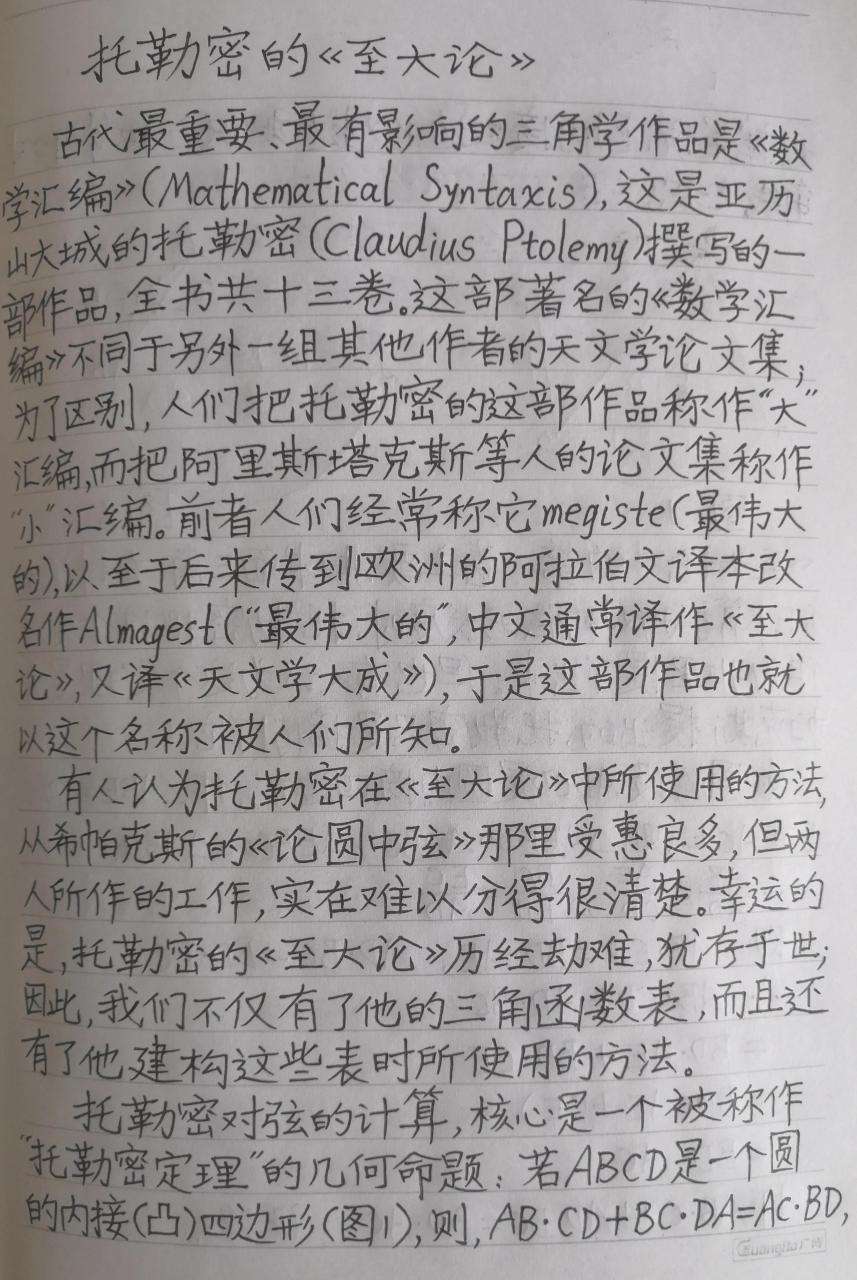 托勒密的《至大论》
古代最重要、最有影响的三角学作品是《数
学汇编》(Mathematical Syntaxis),这是亚历
山大城的托勒密(Claudius Ptolemy)撰写的一
部作品,全书共十三卷。这部著名的《数学汇
编》不同于另外一组其他作者的天文学论文集;
为了区别,人们把托勒密的这部作品称作“大”
汇编,而把阿里斯塔克斯等人的论文集称作
“小”汇编。前者人们经常称它megiste(最伟大
的),以至于后来传到欧洲的阿拉伯文译本改
名作Almagest(“最伟大的”,中文通常译作《至大
论》,又译《天文学大成》),于是这部作品也就
以这个名称被人们所知。
有人认为托勒密在《至大论》中所使用的方法,
从希帕克斯的《论圆中弦》那里受惠良多,但两
人所作的工作,实在难以分得很清楚。幸运的
是,托勒密的《至大论》历经劫难,犹存于世;
因此,我们不仅有了他的三角函数表,而且还
有了他建构这些表时所使用的方法。
托勒密对弦的计算,核心是一个被称作
“托勒密定理”的几何命题:若ABCD是一个圆
的内接(凸)四边形(图1),则,AB·CD+BC·DA=AC·BD,
Guangbo广博